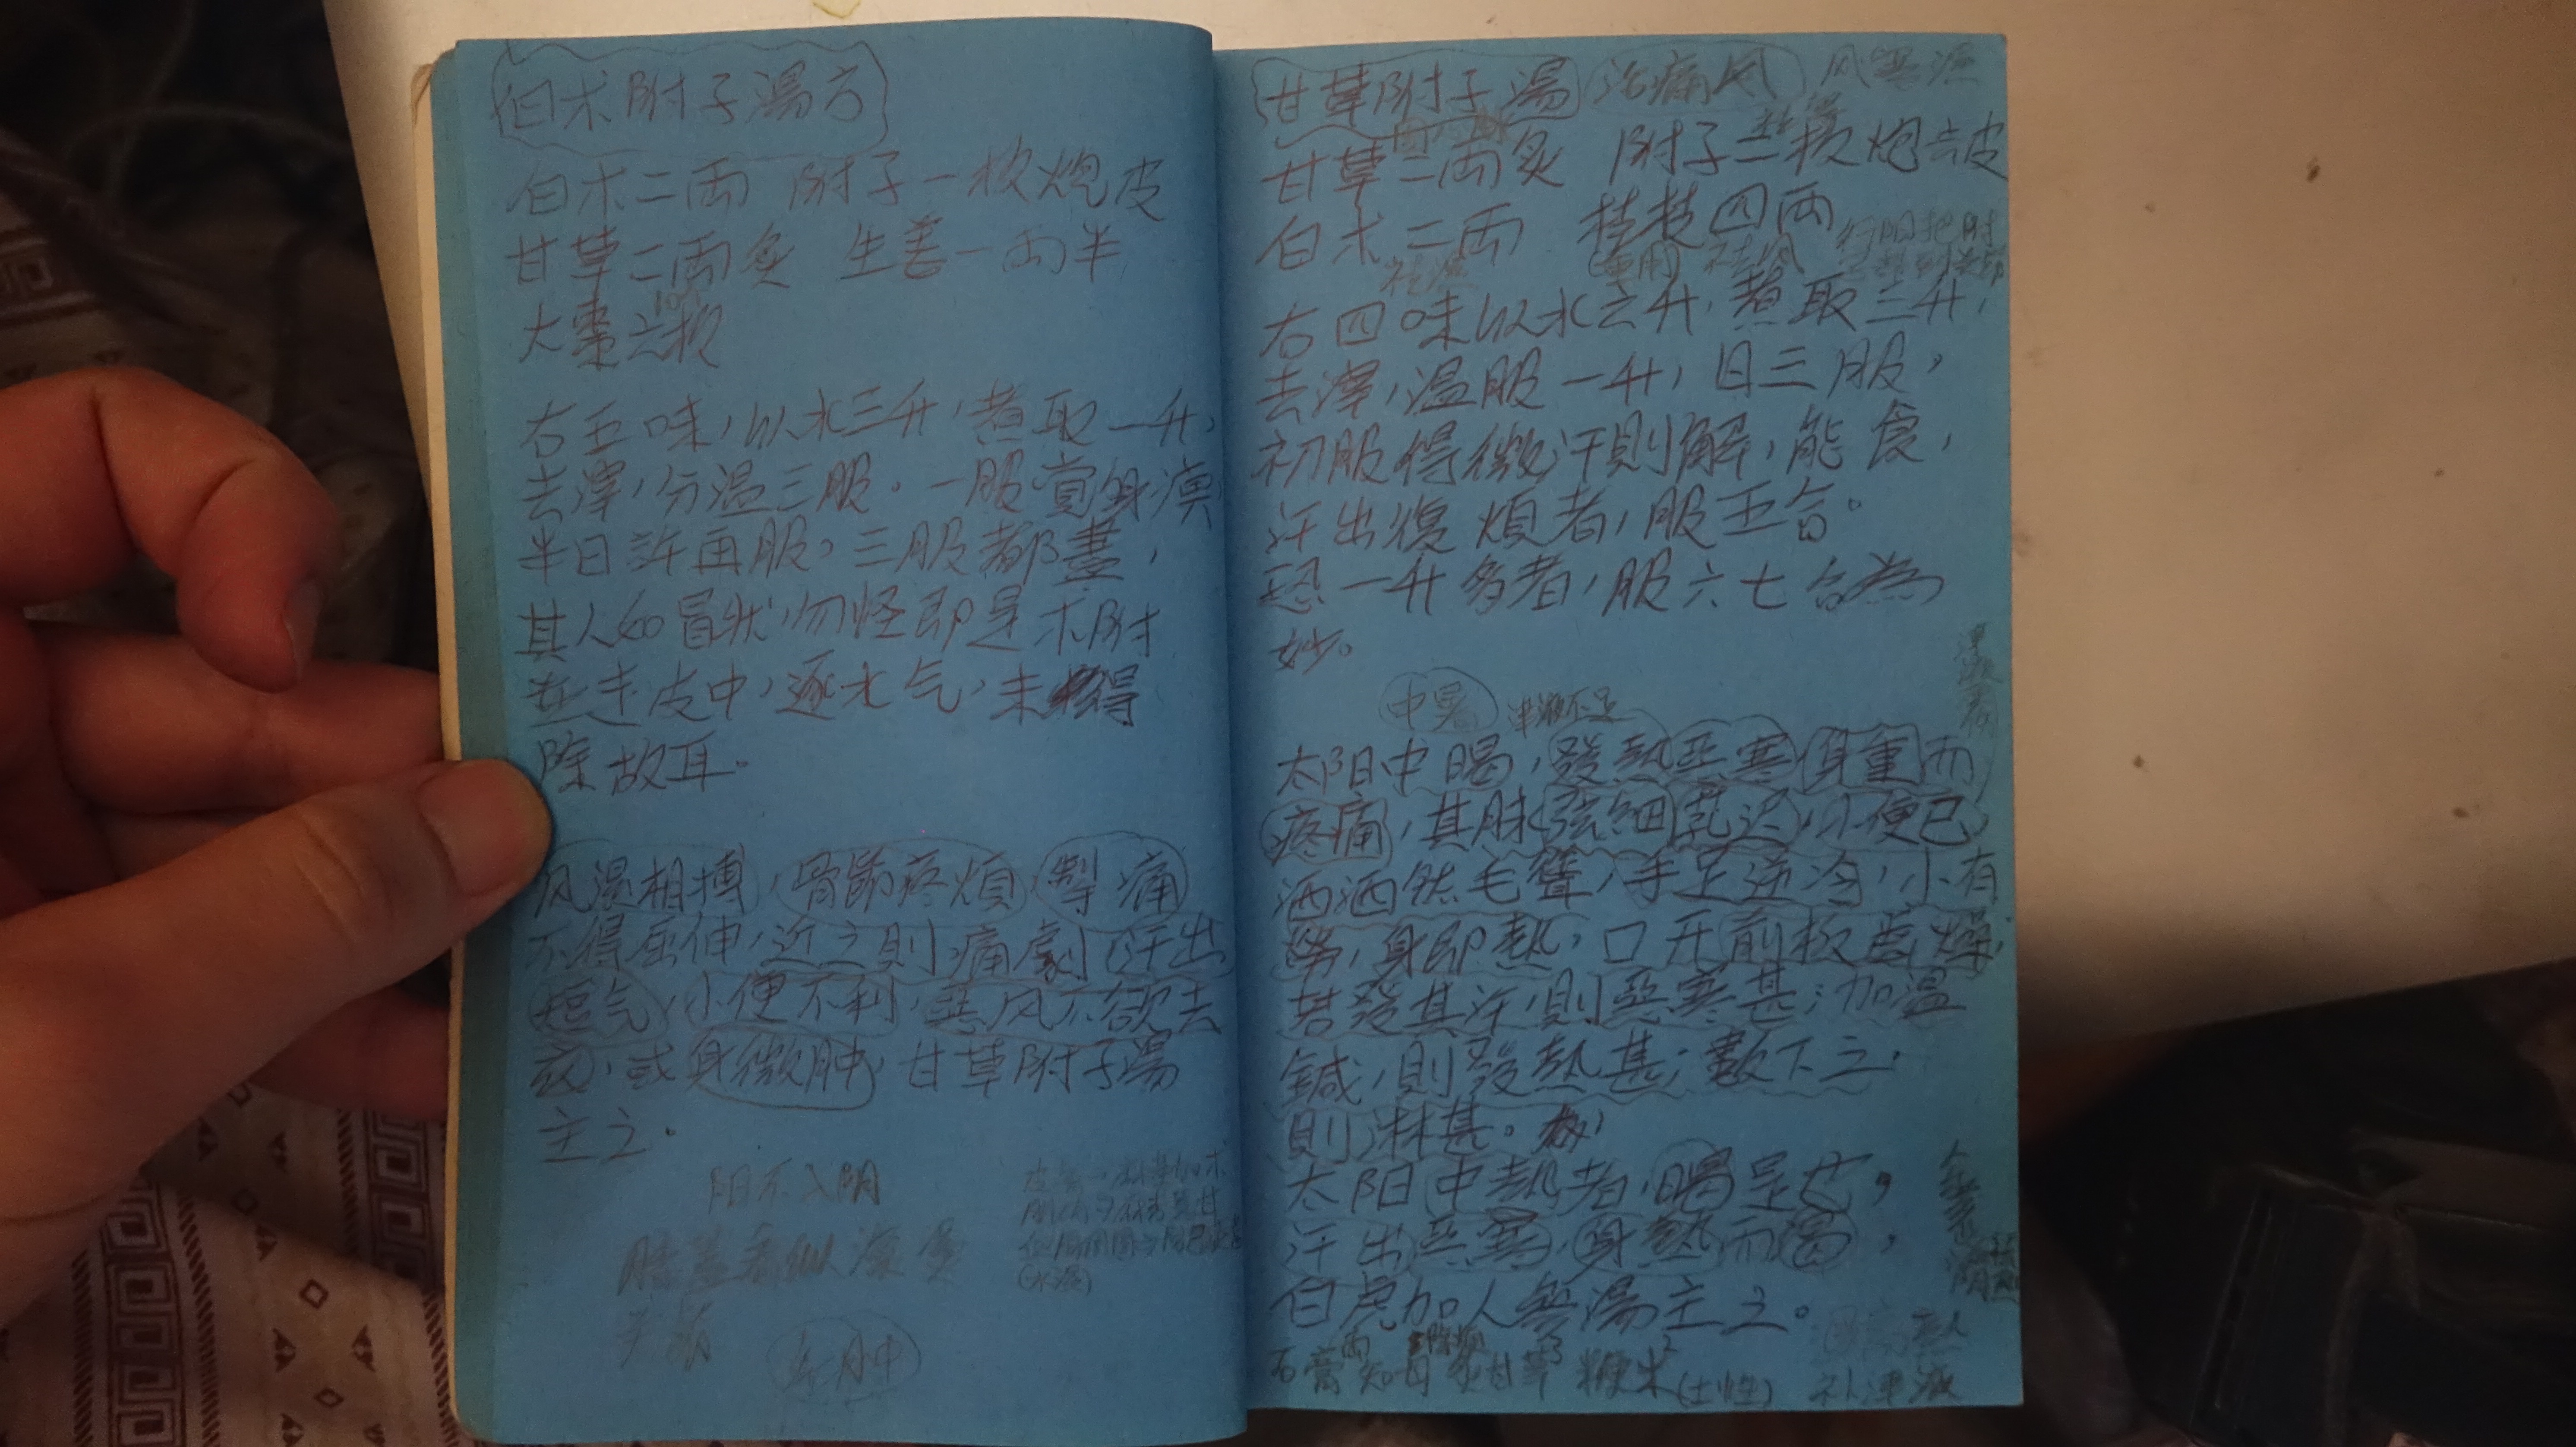 白术附子湯方
白术二两 附子一枚炮皮
甘草二两炙 生姜一两半
大棗六枚
右五味,以水三升,煮取一升,
去滓,分温三服。一服覺身痹
半日許再服,三服都盡,
其人如冒狀,勿怪即是术附
並走皮中,逐水气,未得
除故耳.
风湿相搏,骨節疼煩,掣痛
不得屈伸,近之則痛劇,汗出
短气,小便不利,惡风不欲去
衣,或身微肿,甘草附子湯
主之.
阳不入阴
(水湿)
甘草附子湯 治痛风 风寒湿
甘草二两炙 附子二枚炮去皮
白术二两 桂枝四两
祛湿 重用 祛风
右四味以水六升,煮取三升,
去滓,温服一升,日三服,
初服得微汗則解,能食,
汗出復煩者,服五合。
恐一升多者,服六七合為
妙。
中暑 津液不足
太阳中暍,發熱惡寒身重而
疼痛,其脉弦細芤迟,小便已
洒洒然毛聳,手足逆冷,小有
勞,身即熱,口开前板齒燥,
若發其汗,則惡寒甚;加温
鍼,則發熱甚;數下之,
則淋甚。
太阳中熱者,暍是也,
汗出惡寒,身熱而渴,
白虎加人參湯主之。
石膏 知母 炙甘草 粳米(土性) 补津液